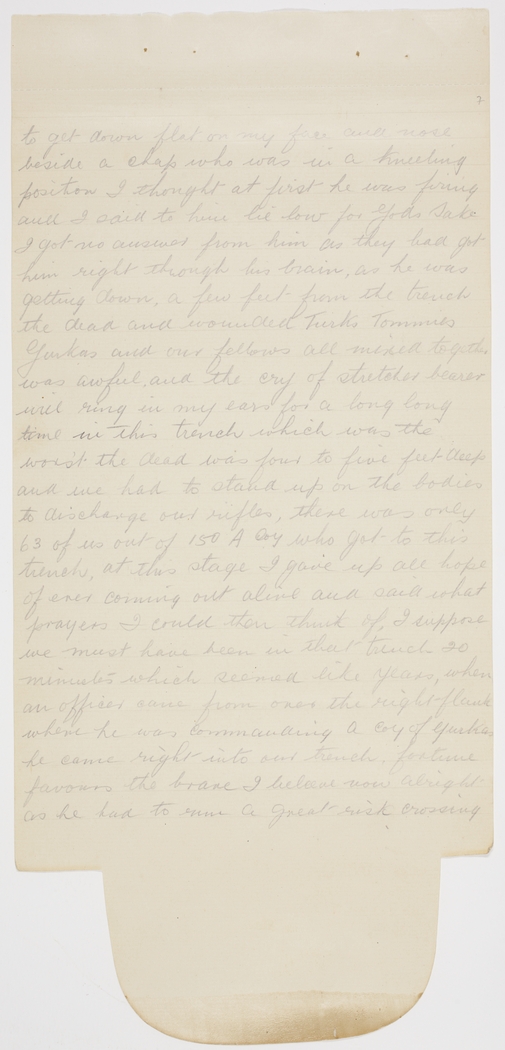 7
to get down flat on my face and nose
beside a chap who was in a kneeling
position I thought at first he was firing
and I said to him lie low for Gods sake
I got no answer from him as they had got
him right through his brain, as he was
getting down, a few feet from the trench
the dead and wounded Turks Tommies
Gurkas and our fellows all mixed together
was awful, and the cry of stretcher bearer
will ring in my ears for a long long
time in this trench which was the
worst the dead was four to five feet deep
and we had to stand up on the bodies
to discharge our rifles, there was only
63 of us out of 150 A Coy who got to this
trench, at this stage I gave up all hope
of ever coming out alive and said what
prayers I could then think of, I suppose
we must have been in that trench 20
minutes which seemed like years, when
an officer came from over the right flank
where he was commanding a coy of Gurkas
he came right into our trench, fortune
favours the brave I believe now alright
as he had to run a great risk crossing